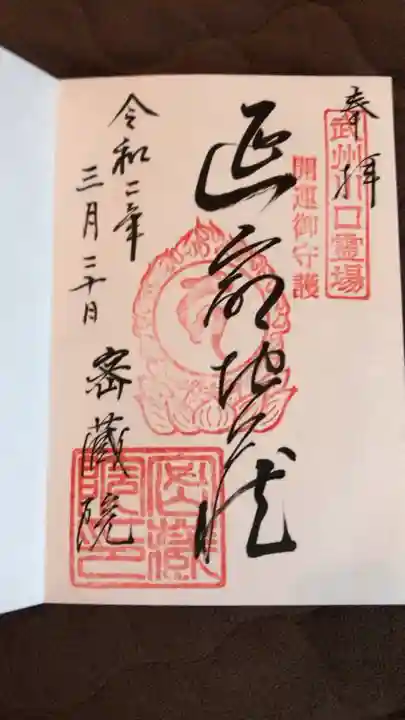 奉拝
武州川口霊場
開運御守護
延命地蔵
令和二年
三月二十日
密蔵院